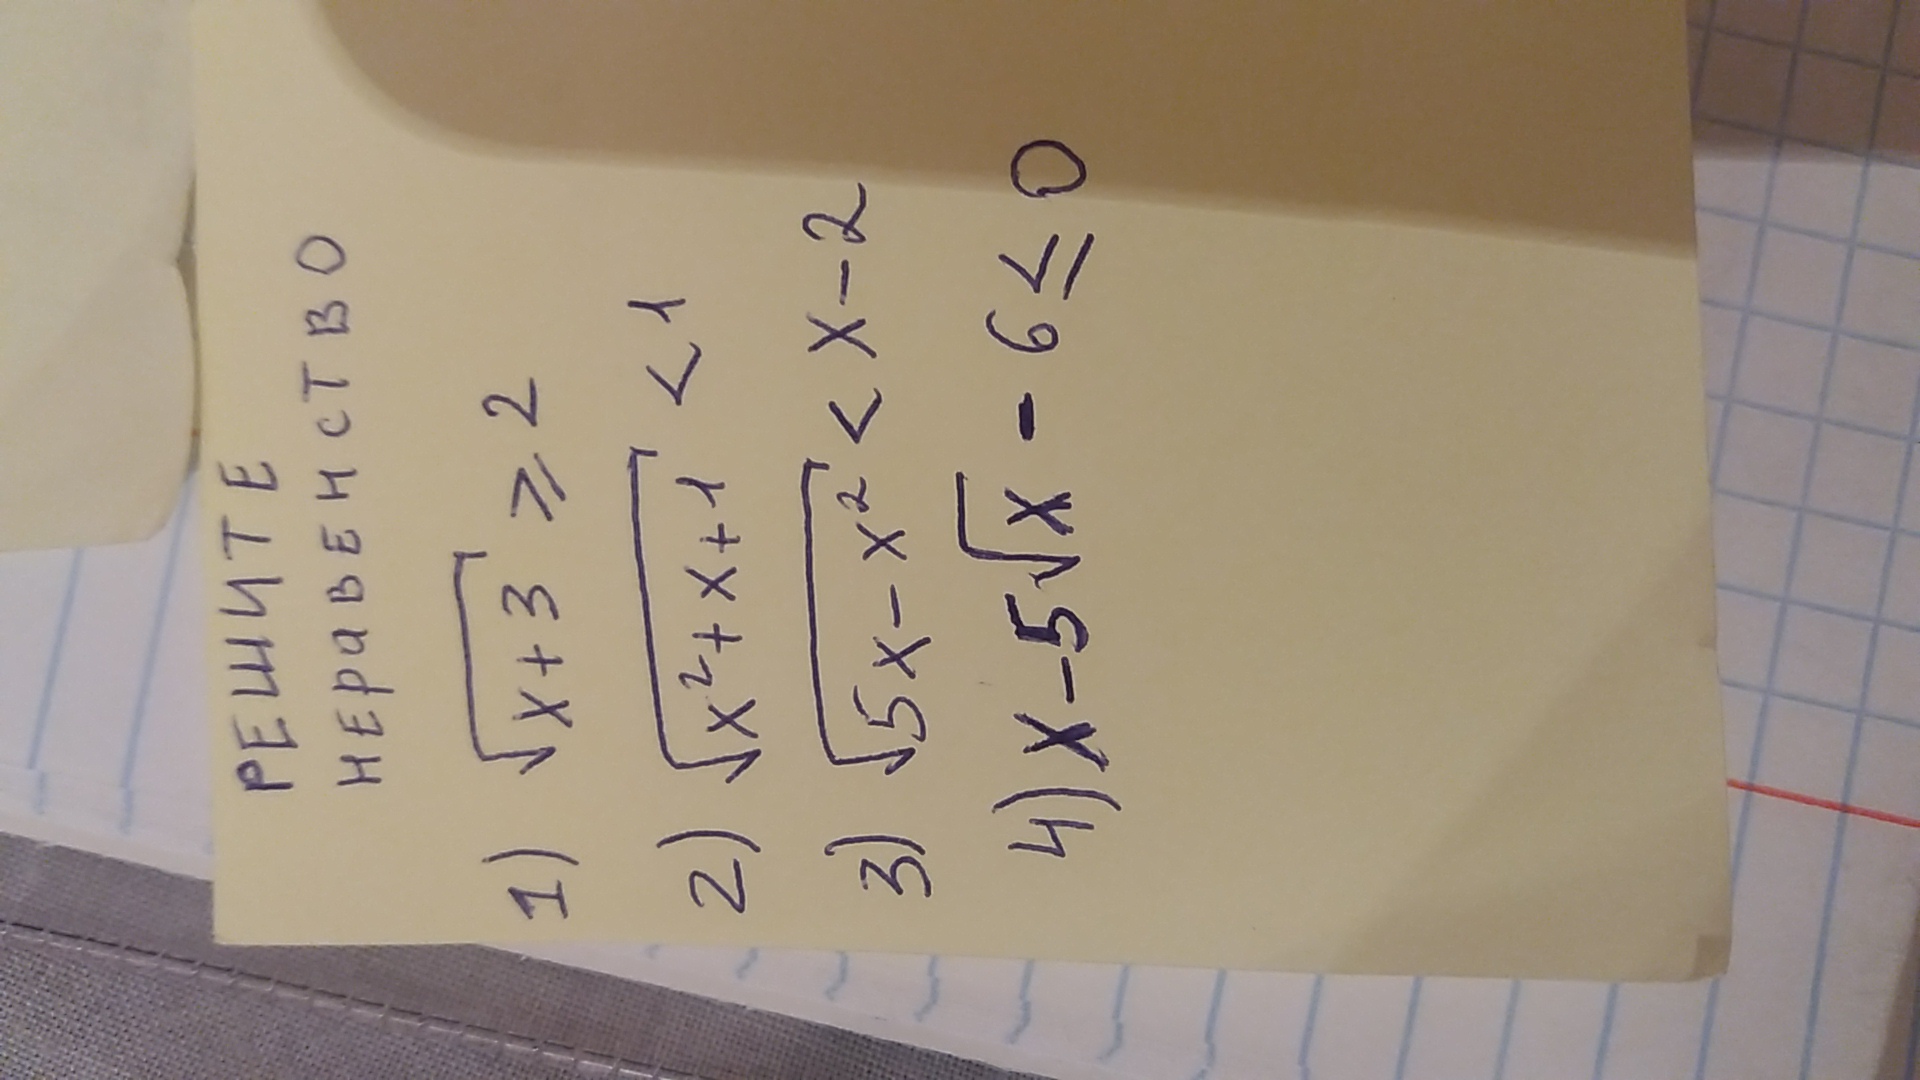 РЕШИТЕ
НЕраВЕНСТВО
1) √x+3 ⩾ 2
2) √x²+x+1 < 1
3) √5x-x² < x-2
4) x-5√x - 6 ≤ 0